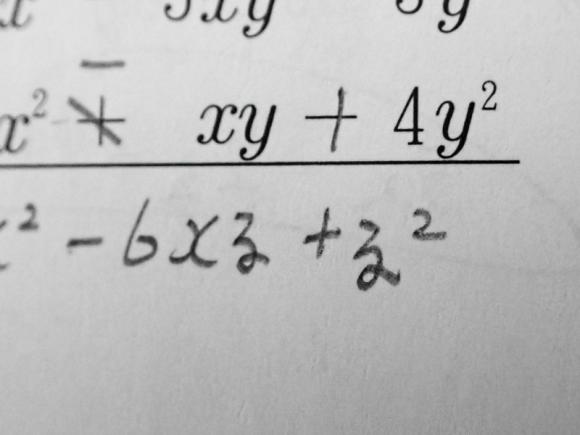 xy y
−
x² + xy + 4y²
² − 6xz + z²